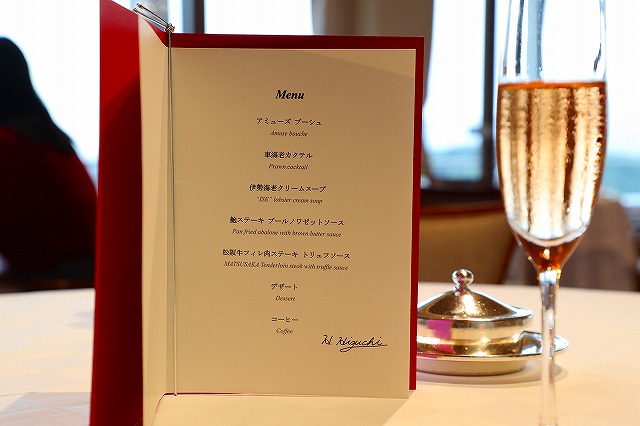 Menu
アミューズ ブーシュ
Amuse bouche
車海老カクテル
Prawn cocktail
伊勢海老クリームスープ
"ISE" lobster cream soup
鮑ステーキ ブールノワゼットソース
Pan fried abalone with brown butter sauce
松阪牛フィレ肉ステーキ トリュフソース
MATSUSAKA Tenderloin steak with truffle sauce
デザート
Dessert
コーヒー
Coffee
H Higuchi